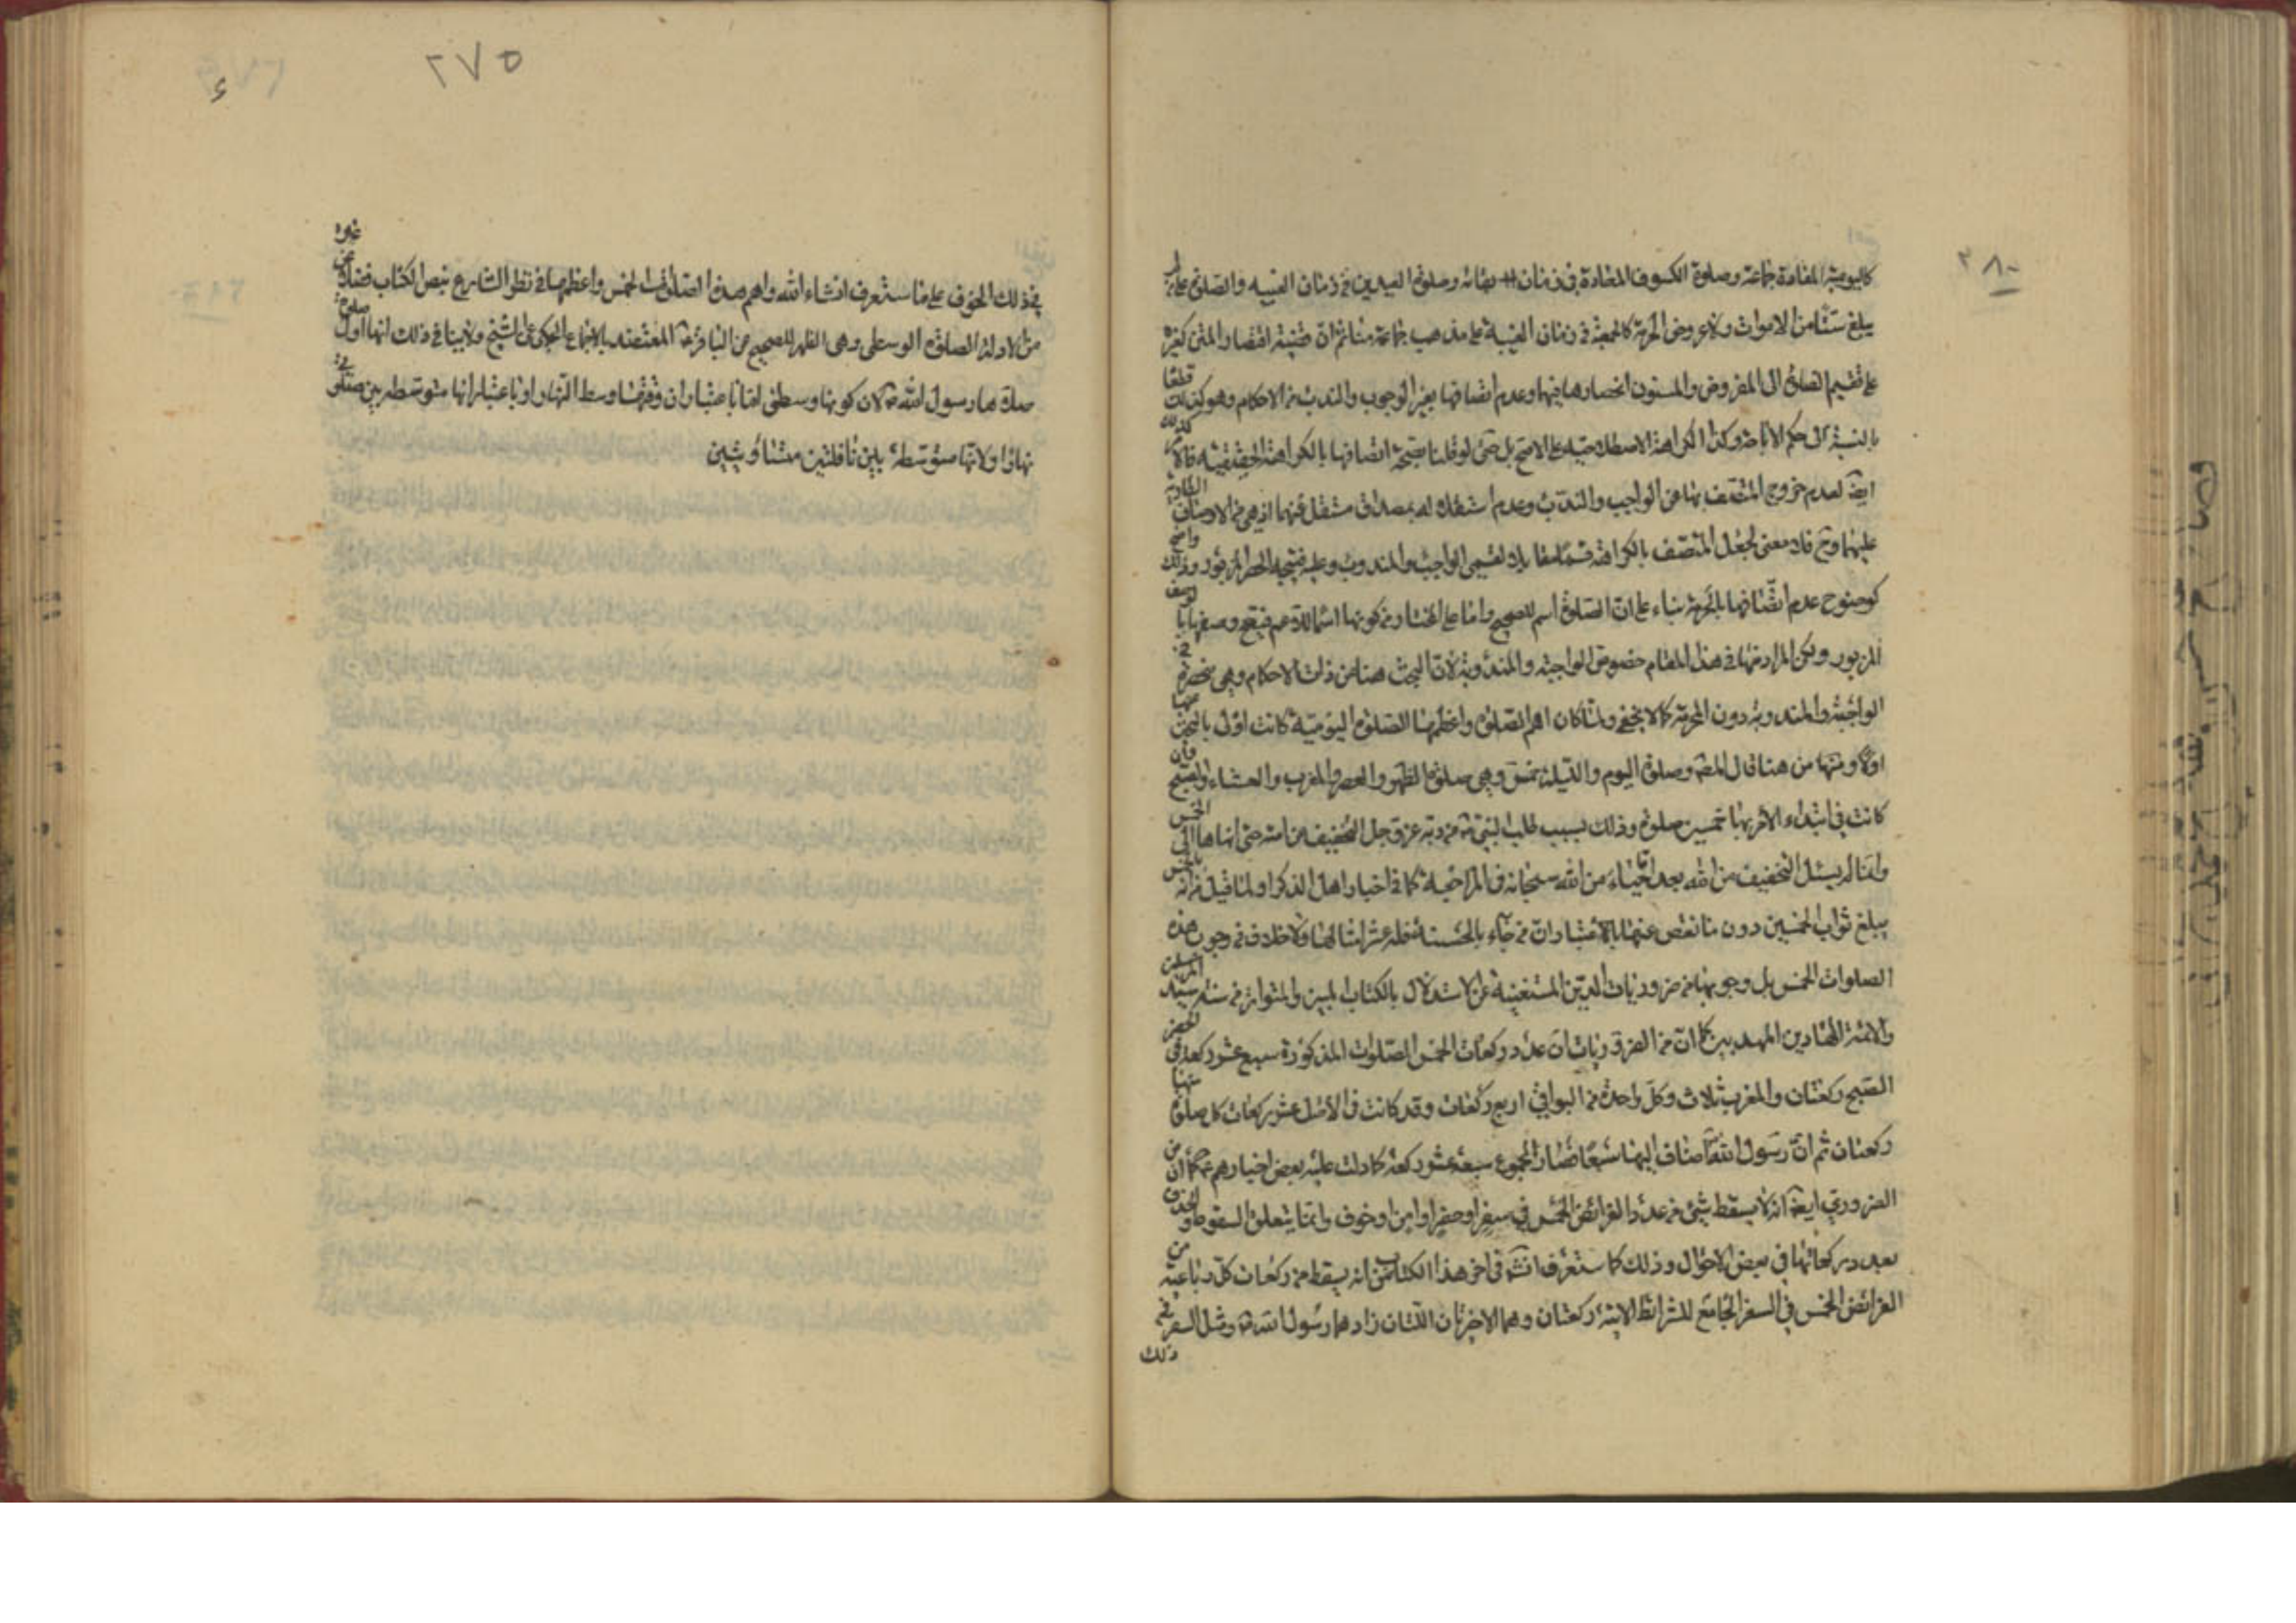 كاليومية المعادة جماعة وصلوة الكسوف المعادة في زمان وصلوة العيدين في زمان الغيبة والصلوة على من لم
يبلغ ستا من الاموات ولا عروض الحرمة كالجمعة في زمان الغيبة على مذهب جماعة منا ثم ان قضية اقتصار المتن كغيره
على تقسيم الصلوة الى المفروض والمسنون انحصارها فيهما وعدم اتصافها بغير الوجوب والندب من الاحكام وهو كذلك قطعا
بالنسبة الى حكم الاباحة وكذا الكراهة الاصطلاحية على الاصح بل حتى لو قلنا بصحة اتصافها بالكراهة الحقيقية فالامر كذلك
ايضا لعدم خروج المتصف بها عن الواجب والندب وعدم استقلاله بمصداق مستقل عنهما اذ هي من الاوصاف الطارية
عليهما وح فلا معنى لجعل المتصف بالكراهة قسما مقابلا لقسمي الواجب والمندوب وعليه فيتجه الحصر المزبور وذلك واضح
كوضوح عدم اتصافها بالحرمة بناء على ان الصلوة اسم للصحيح واما على المختار من كونها اسما للاعم فيقع وصفها بالوصف
المزبور ولكن المراد منها في هذا المقام خصوص الواجبة والمندوبة لان البحث هنا عن ذات الاحكام وهي منحصرة في
الواجبة والمندوبة دون المحرمة كما لا يخفى ولما كان اهم الصلوة واعظمها الصلوة اليومية كانت اولى بالبحث عنها
اولا ومنها من هنا قال المصـ وصلوة اليوم والليلة خمس وهي صلوة الظهر والعصر والمغرب والعشاء والصبح وان
كانت في ابتداء الامر بها خمسين صلوة وذلك بسبب طلب النبي ص من ربه عز وجل التخفيف عن امته حتى انهاها الى الخمس
وانما لم يسئل التخفيف من الله بعد احياء من الله سبحانه في المراجعة كما في اخبار اهل الذكر او لما قيل من انه بالخمس
يبلغ ثواب الخمسين دون ما نقص عنها بالاعتبار ان من جاء بالحسنة فله عشر امثالها ولا خلاف في وجوب هذه
الصلوات الخمس بل وجوبها من ضروريات الدين المستغنية عن الاستدلال بالكتاب المبين والمتواتر من سنة سيد المرسلين
والائمة الهادين المهديين كما ان من الضروريات ان عدد ركعات الخمس الصلوات المذكورة سبع عشر ركعة في الحضر
الصبح ركعتان والمغرب ثلاث وكل واحدة من البواقي اربع ركعات وقد كانت في الاصل عشر ركعات كل صلوة منها
ركعتان ثم ان رسول الله ص اضاف اليها سبعا فصار المجموع سبعة عشر ركعة كما دلت عليه بعض اخبارهم ع كما ان من
الضروري ايضا انه لا يسقط شيء من عدد الفرائض الخمس في سفر او حضر او امن او خوف وانما يتعلق السقوط والحذف
بعدد ركعاتها في بعض الاحوال وذلك كما ستعرف انشـ في اخر هذا الكتاب من انه يسقط من ركعات كل رباعية من
الفرائض الخمس في السفر الجامع للشرائط الاتية ركعتان وهما الاخيرتان اللتان زادهما رسول الله ص ومثل السفر في
ذلك
٢٨٠
٢٧٥
في ذلك الخوف على ما ستعرف انشاء الله واهم هذه الصلوات الخمس واعظمها في نظر الشارع بنص الكتاب فضلا عن غيره
من الادلة الصلوة الوسطى وهي الظهر للصحيح عن الباقر ع المعتضد بالاجماع المحكي عن الشيخ ولابينا في ذلك انها اول صلوة
صلاها رسول الله ص لان كونها وسطى اما باعتبار ان وقتها وسط النهار او باعتبار انها متوسطة بين صلوتي
نهارا ولانها متوسطة بين نافلتين متساويتين